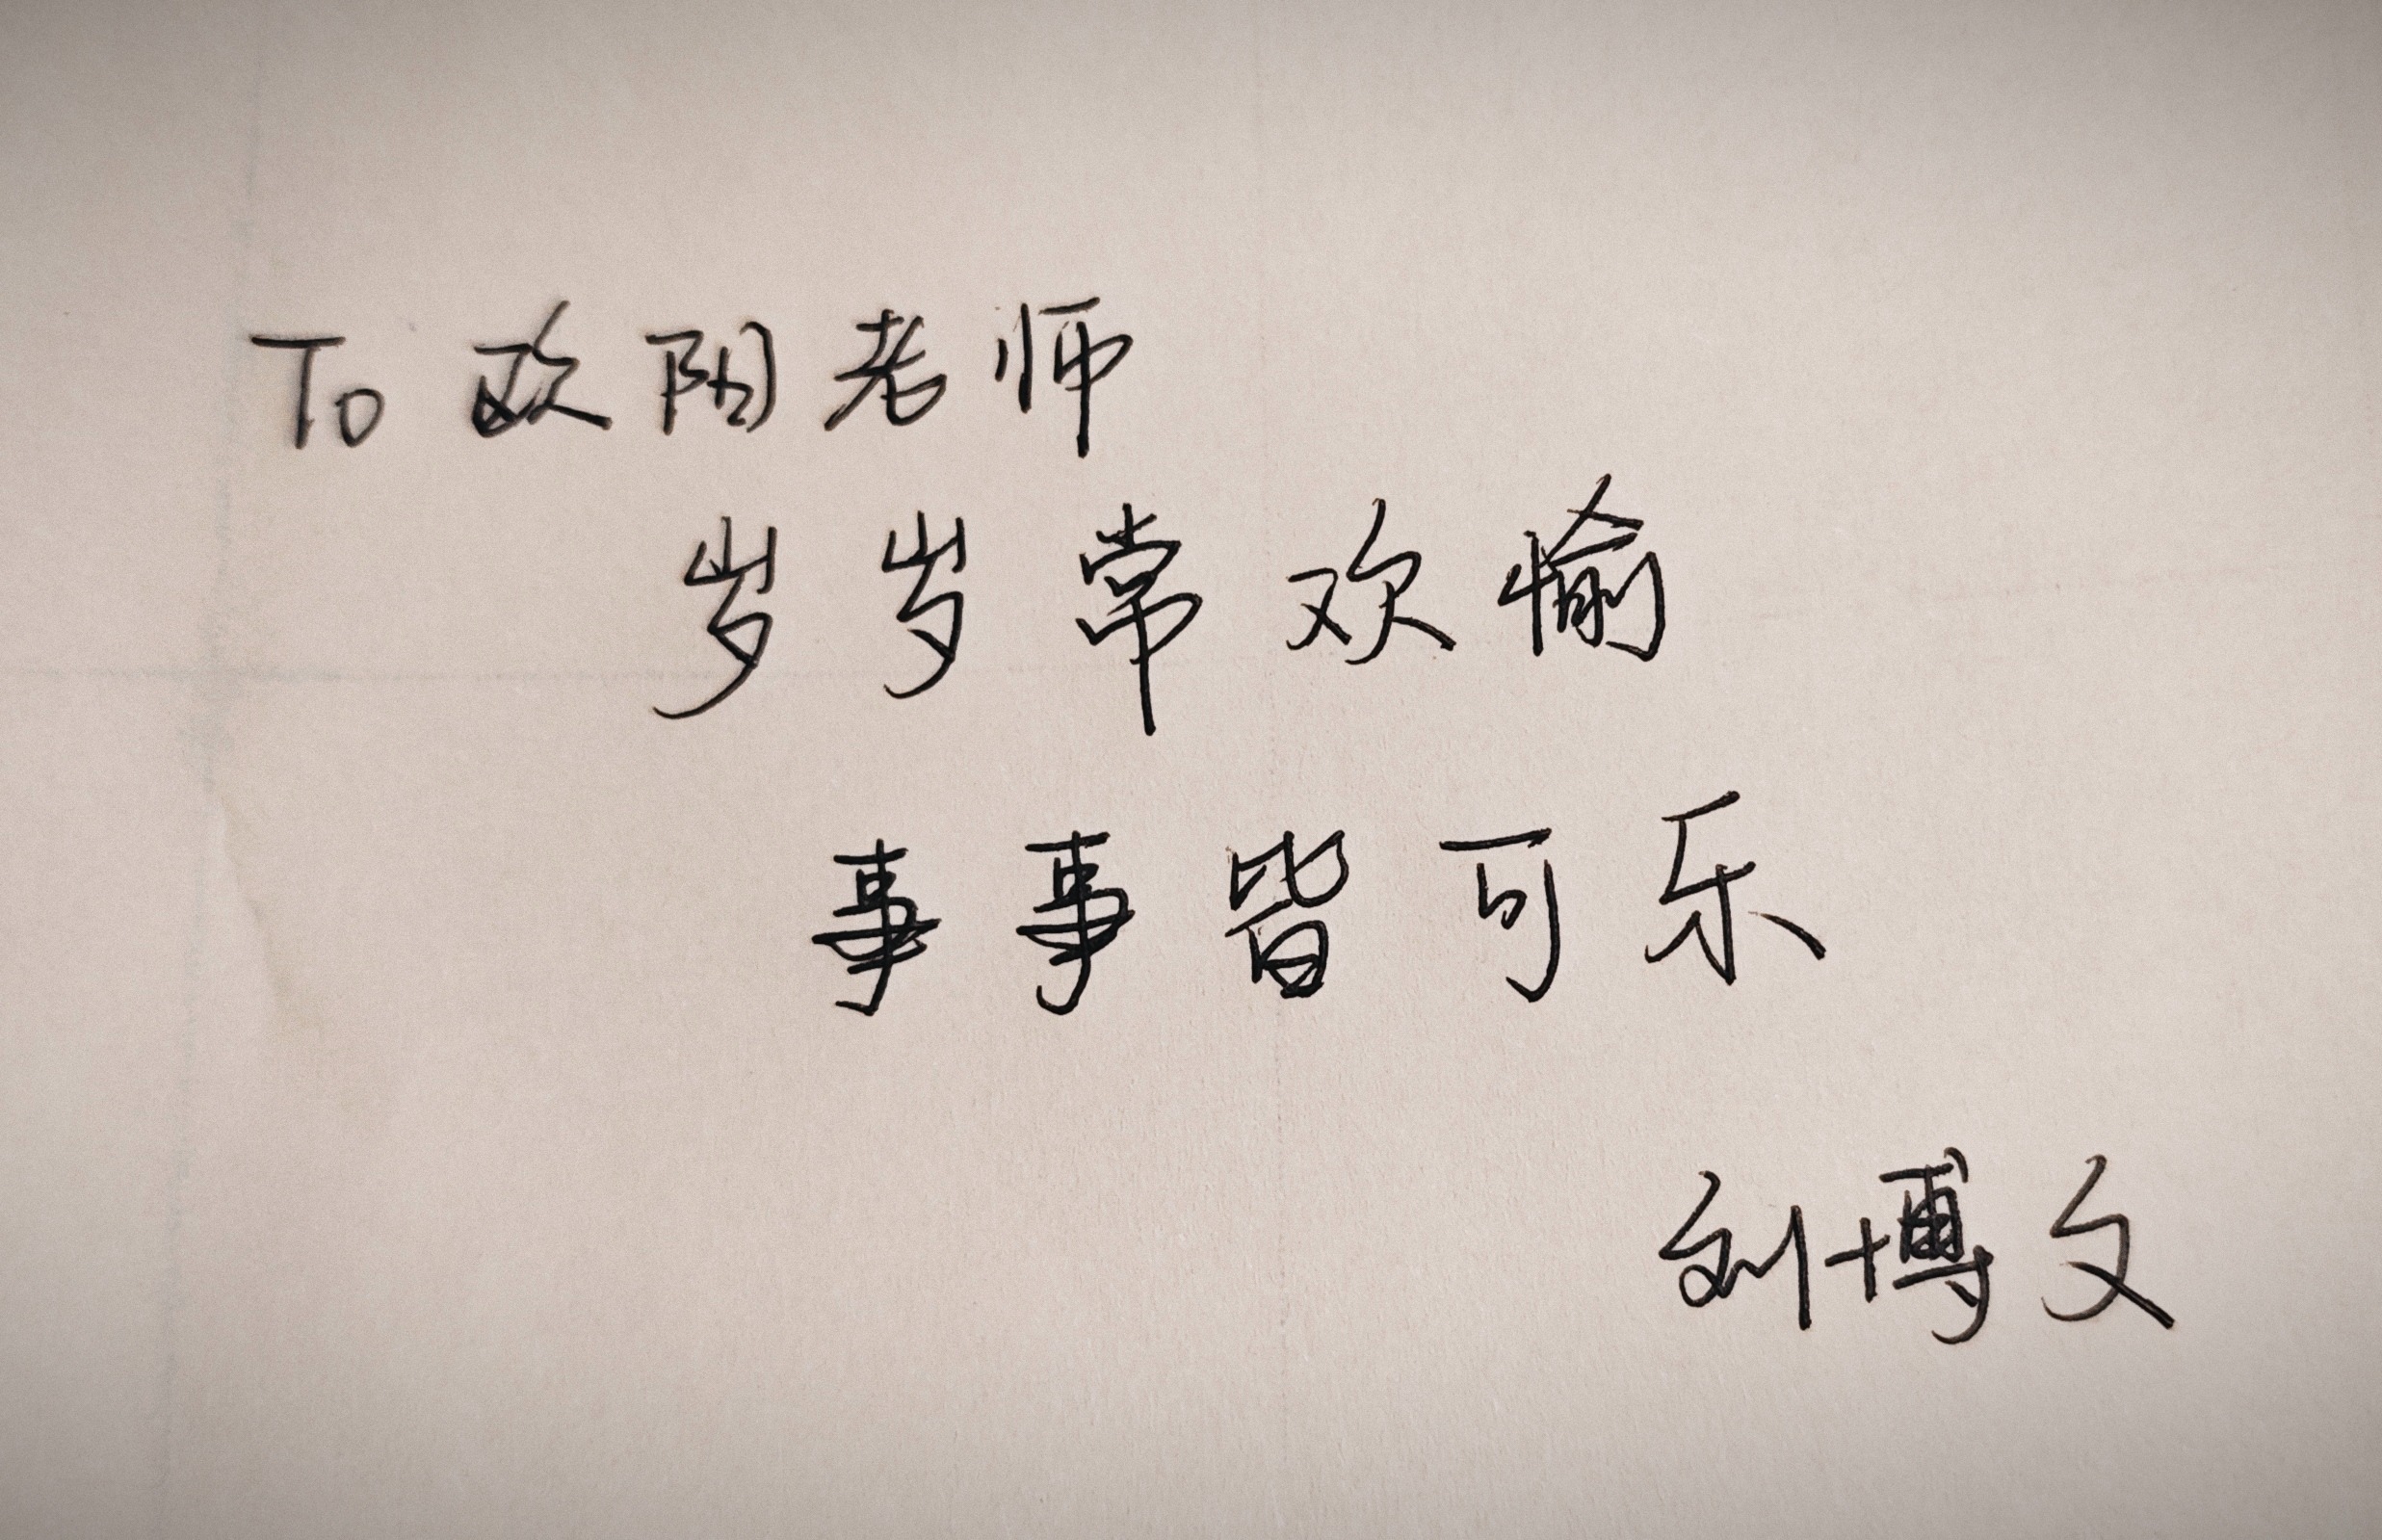 To 欧阳老师
岁岁常欢愉
事事皆可乐
刘博文